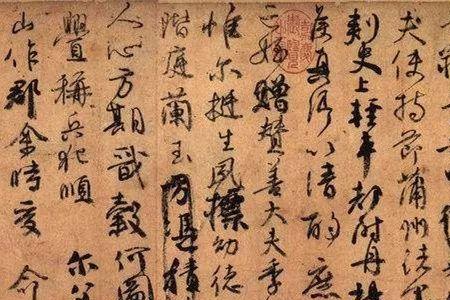 夫使持節蒲州諸
刺史上輕車都尉丹楊
侯真卿以清酌庶
亡姪贈贊善大夫季
惟爾挺生夙標幼德
階庭蘭玉方憑積
人心方期戩穀何圖
釁稱兵犯順 爾父
山作郡余時受 命